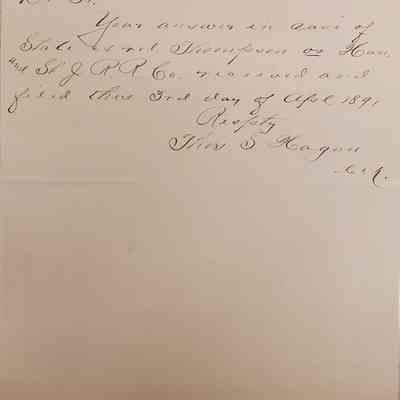 Dr Sir
Your answer in case of
State ex rel Thompson vs Han.
and St J R R Co. received and
filed this 3rd day of Apl. 1891
Respty
Thos S Hagan
Clk.